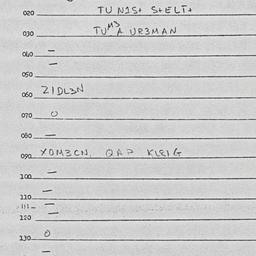 020 TU N1S+ S+ELI+
030 TU M3 A UR3MAN
040 —
—
050
060 ZIDL3N
070 O
080 —
090 XOM3CN. QAP KLEIG
100 —
110 —
111 —
—
120
130 O
—